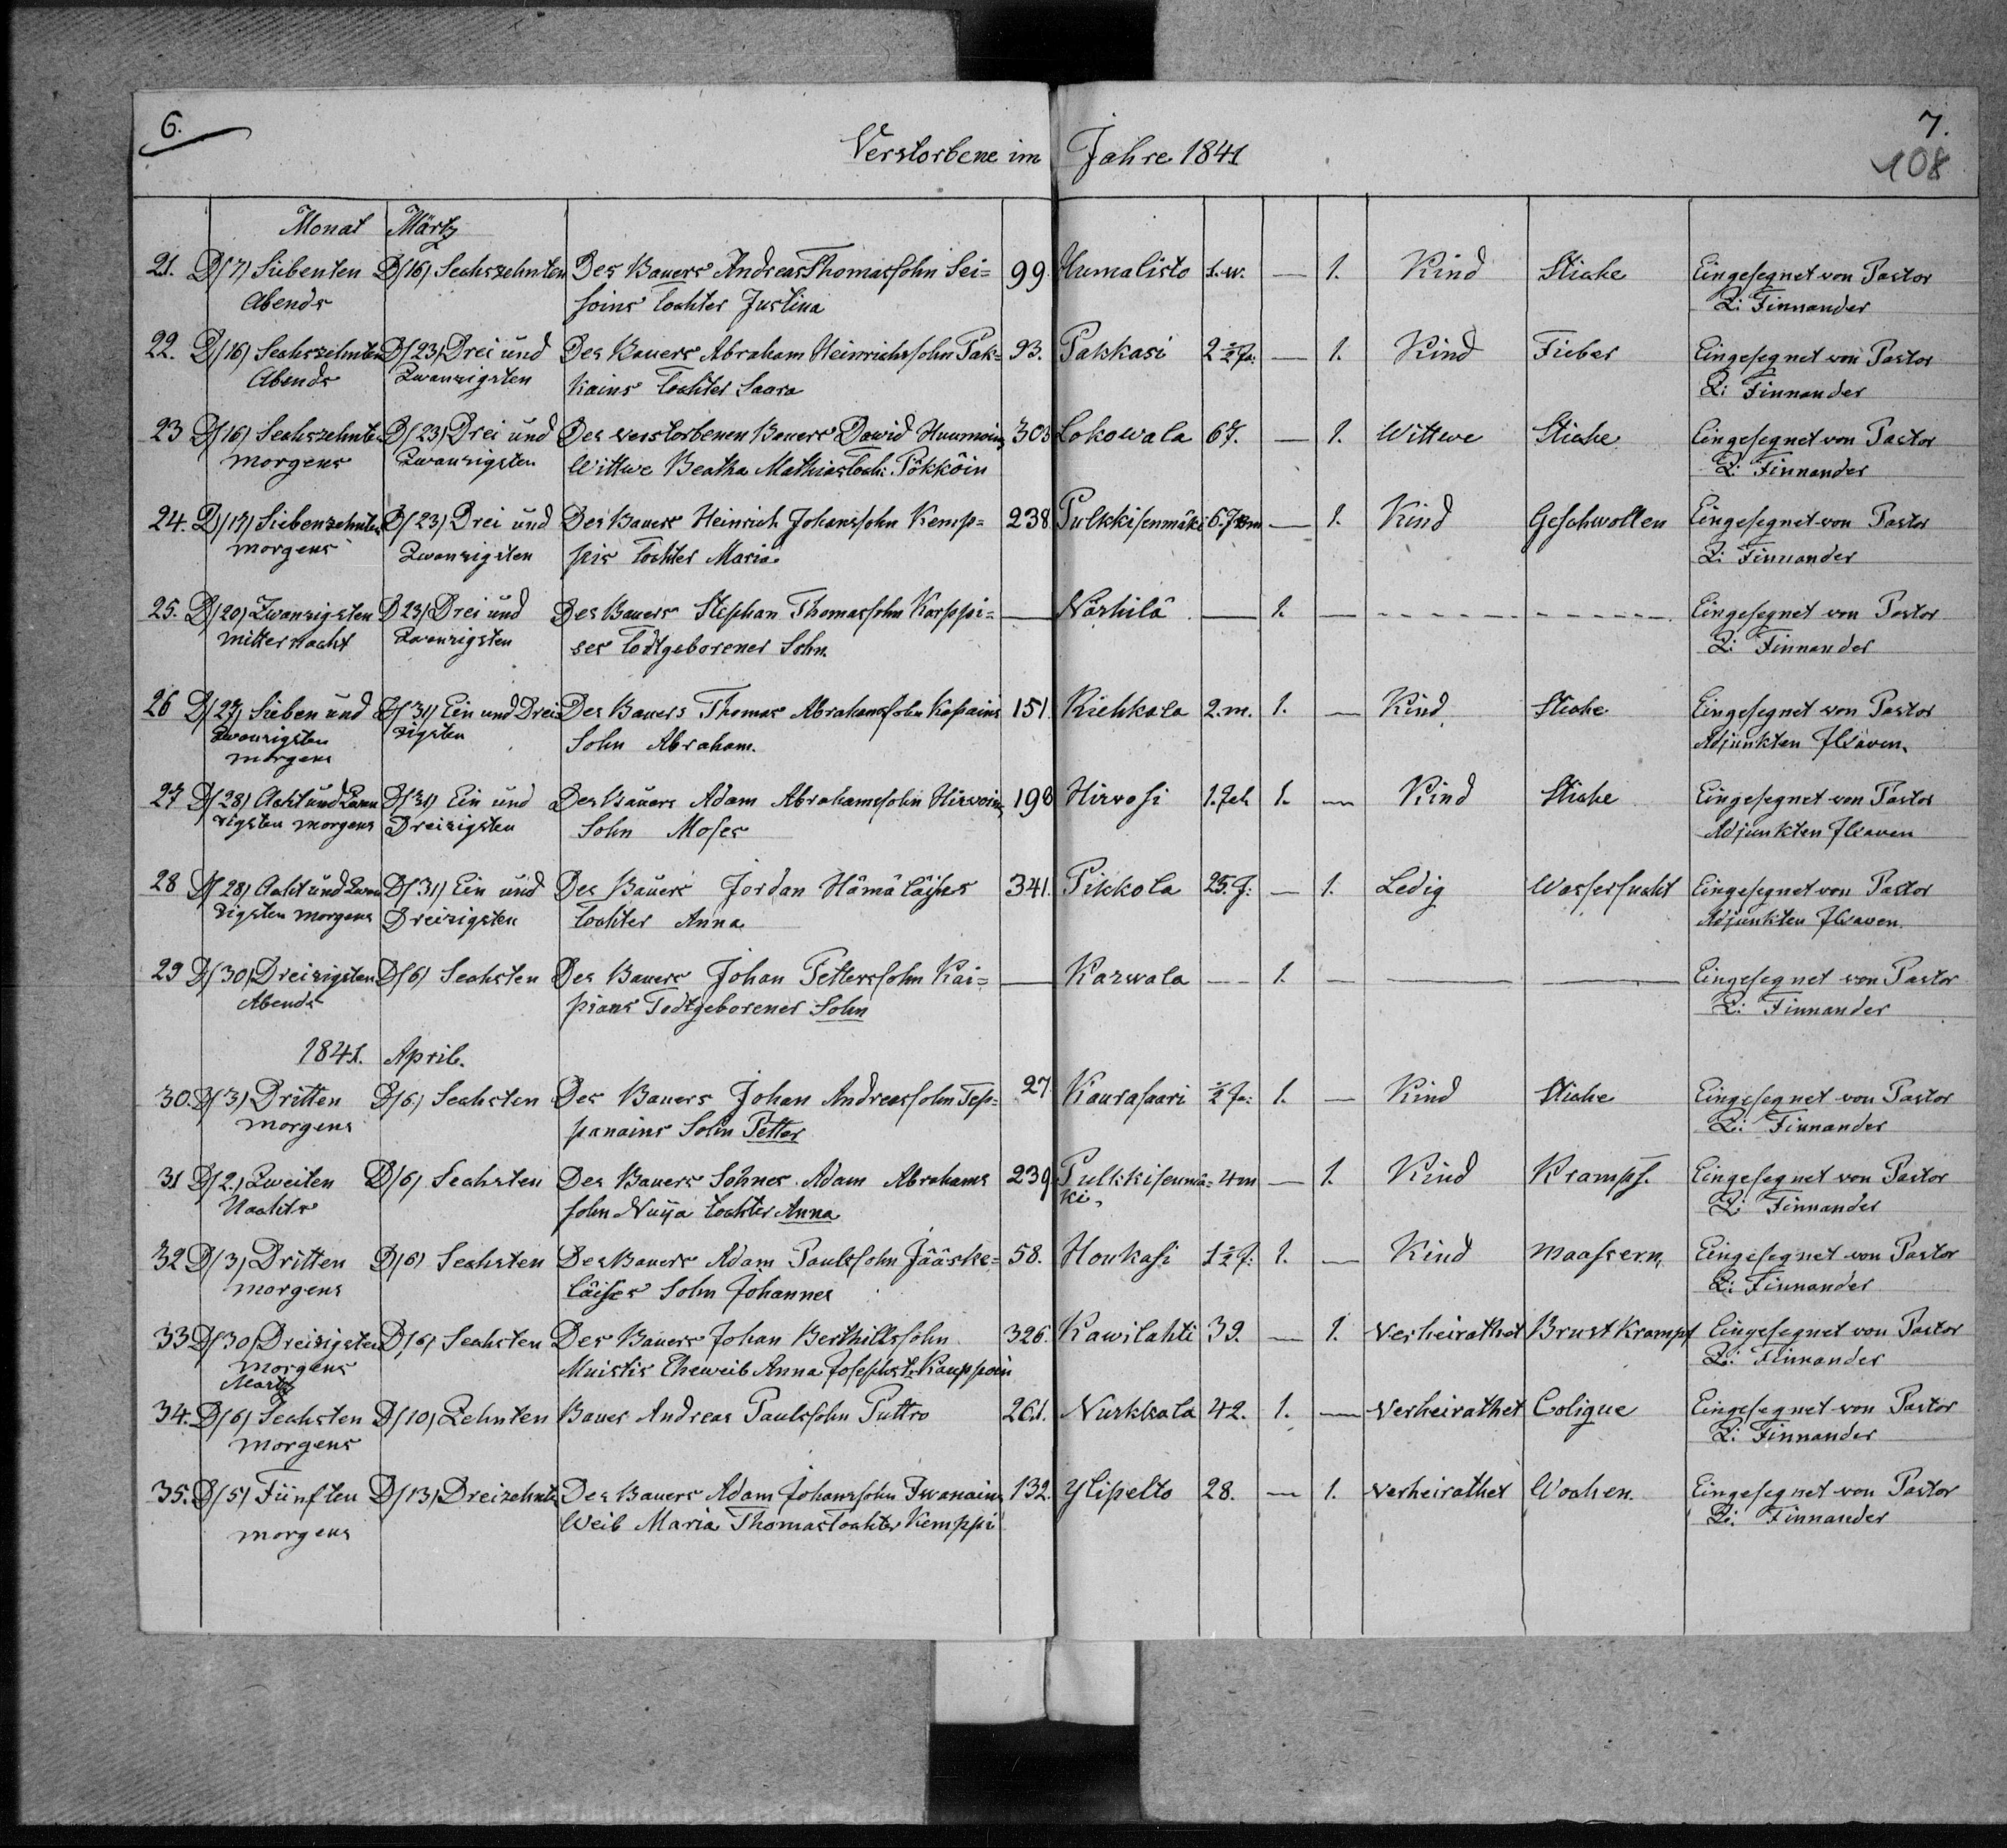 6.
7.
Verstorbene im Jahre 1841
108
Monat Märtz
21. D/7/ Siebenten D/16/ Sechszehnten Des Bauers Andreas Thomassohn Sei= 99. Humalisto 1.w. — 1. Kind Stiche Eingesegnet von Pastor
Abends soins Tochter Justina Z: Finnander
22. D/16/ Sechszehnten D/23/ Drei und Des Bauers Abraham Heinrichssohn Pak= 93. Pakkasi 2 1/2 Ja: — 1. Kind Fieber Eingesegnet von Pastor
Abends Zwanzigsten kains Tochter Saara Z: Finnander
23 D/16/ Sechszehnten D/23/ Drei und Des verstorbenen Bauers Dawid Huumoins 303 Lokowala 67. — 1. Wittwe Stiche Eingesegnet von Pastor
morgens Zwanzigsten Wittwe Beatha Mathias Toch: Pökköin Z: Finnander
24. D/17/ Siebenzehnten D/23/ Drei und Des Bauers Heinrich Johanssohn Kemp= 238 Pulkkisenmäki 6. — 1. Kind Geschwollen Eingesegnet von Pastor
morgens Zwanzigsten pis Tochter Maria Z: Finnander
25. D/20/ Zwanzigsten D 23/ Drei und Des Bauers Stephan Thomassohn Karppi= — Närhilä — 1. — - - - - - - - - - - Eingesegnet von Pastor
mitternacht Zwanzigsten ses Todtgeborener Sohn. Z: Finnander
26 D/27/ Sieben und D/31/ Ein und Drei Des Bauers Thomas Abrahamssohn Kapains 151. Riehkala 2.m. 1. — Kind Stiche Eingesegnet von Pastor
Zwanzigsten zigsten Sohn Abraham. Adjunkten
morgens
27 D/28/ Acht und Zwan D/31/ Ein und Des Bauers Adam Abrahamssohn Hirvoins 190 Hirvosi 1. 1. — Kind Stiche Eingesegnet von Pastor
zigsten morgens Dreizigsten Sohn Moses Adjunkten
28 D/28/ Acht und Zwan D/31/ Ein und Des Bauers Jordan Hämäläises 341. Pikkola 25.J: — 1. Ledig Wassersucht Eingesegnet von Pastor
zigsten morgens Dreizigsten Tochter Anna Adjunkten
29 D/30/ Dreizigsten D/6/ Sechsten Des Bauers Johan Petterssohn Kai= — Karwala -- 1. — — — Eingesegnet von Pastor
Abends pians Todtgeborener Sohn Z: Finnander
1841. April.
30. D/3/ Dritten D/6/ Sechsten Des Bauers Johan Andreassohn Tep= 27 Kaurasaari 1/2 Ja: 1. — Kind Stiche Eingesegnet von Pastor
morgens panains Sohn Petter Z: Finnander
31 D/2./ Zweiten D/6/ Sechsten Des Bauers Sohnes Adam Abrahams 239 Pulkkisenmä= 4m — 1. Kind Krampf. Eingesegnet von Pastor
Nachts sohn Nuija Tochter Anna ki, Z: Finnander
32 D/3/ Dritten D/6/ Sechsten Des Bauers Adam Paulssohn Jääske= 58. Honkasi 1 1/2 J: 1. — Kind maassern, Eingesegnet von Pastor
morgens läises Sohn Johannes Z: Finnander
33 D/30/ Dreizigsten D/6/ Sechsten Des Bauers Johan Berthillssohn 326. Kawilahti 39. — 1. Verheirathet Brust Krampf Eingesegnet von Pastor
morgens Muistis Eheweib Anna Josephst: Kauppoin Z: Finnander
Martz
34. D/6/ Sechsten D/10/ Zehnten Bauer Andreas Paulssohn Puttro 261. Nurkkala 42. 1. — Verheirathet Colique Eingesegnet von Pastor
morgens Z: Finnander
35. D/5/ Fünften D/13/ Dreizehnte Des Bauers Adam Johanssohn Iwanains 132. Ylipelto 28. — 1. verheirathet Wochen. Eingesegnet von Pastor
morgens Weib Maria Thomastochter Kemppi Z: Finnander